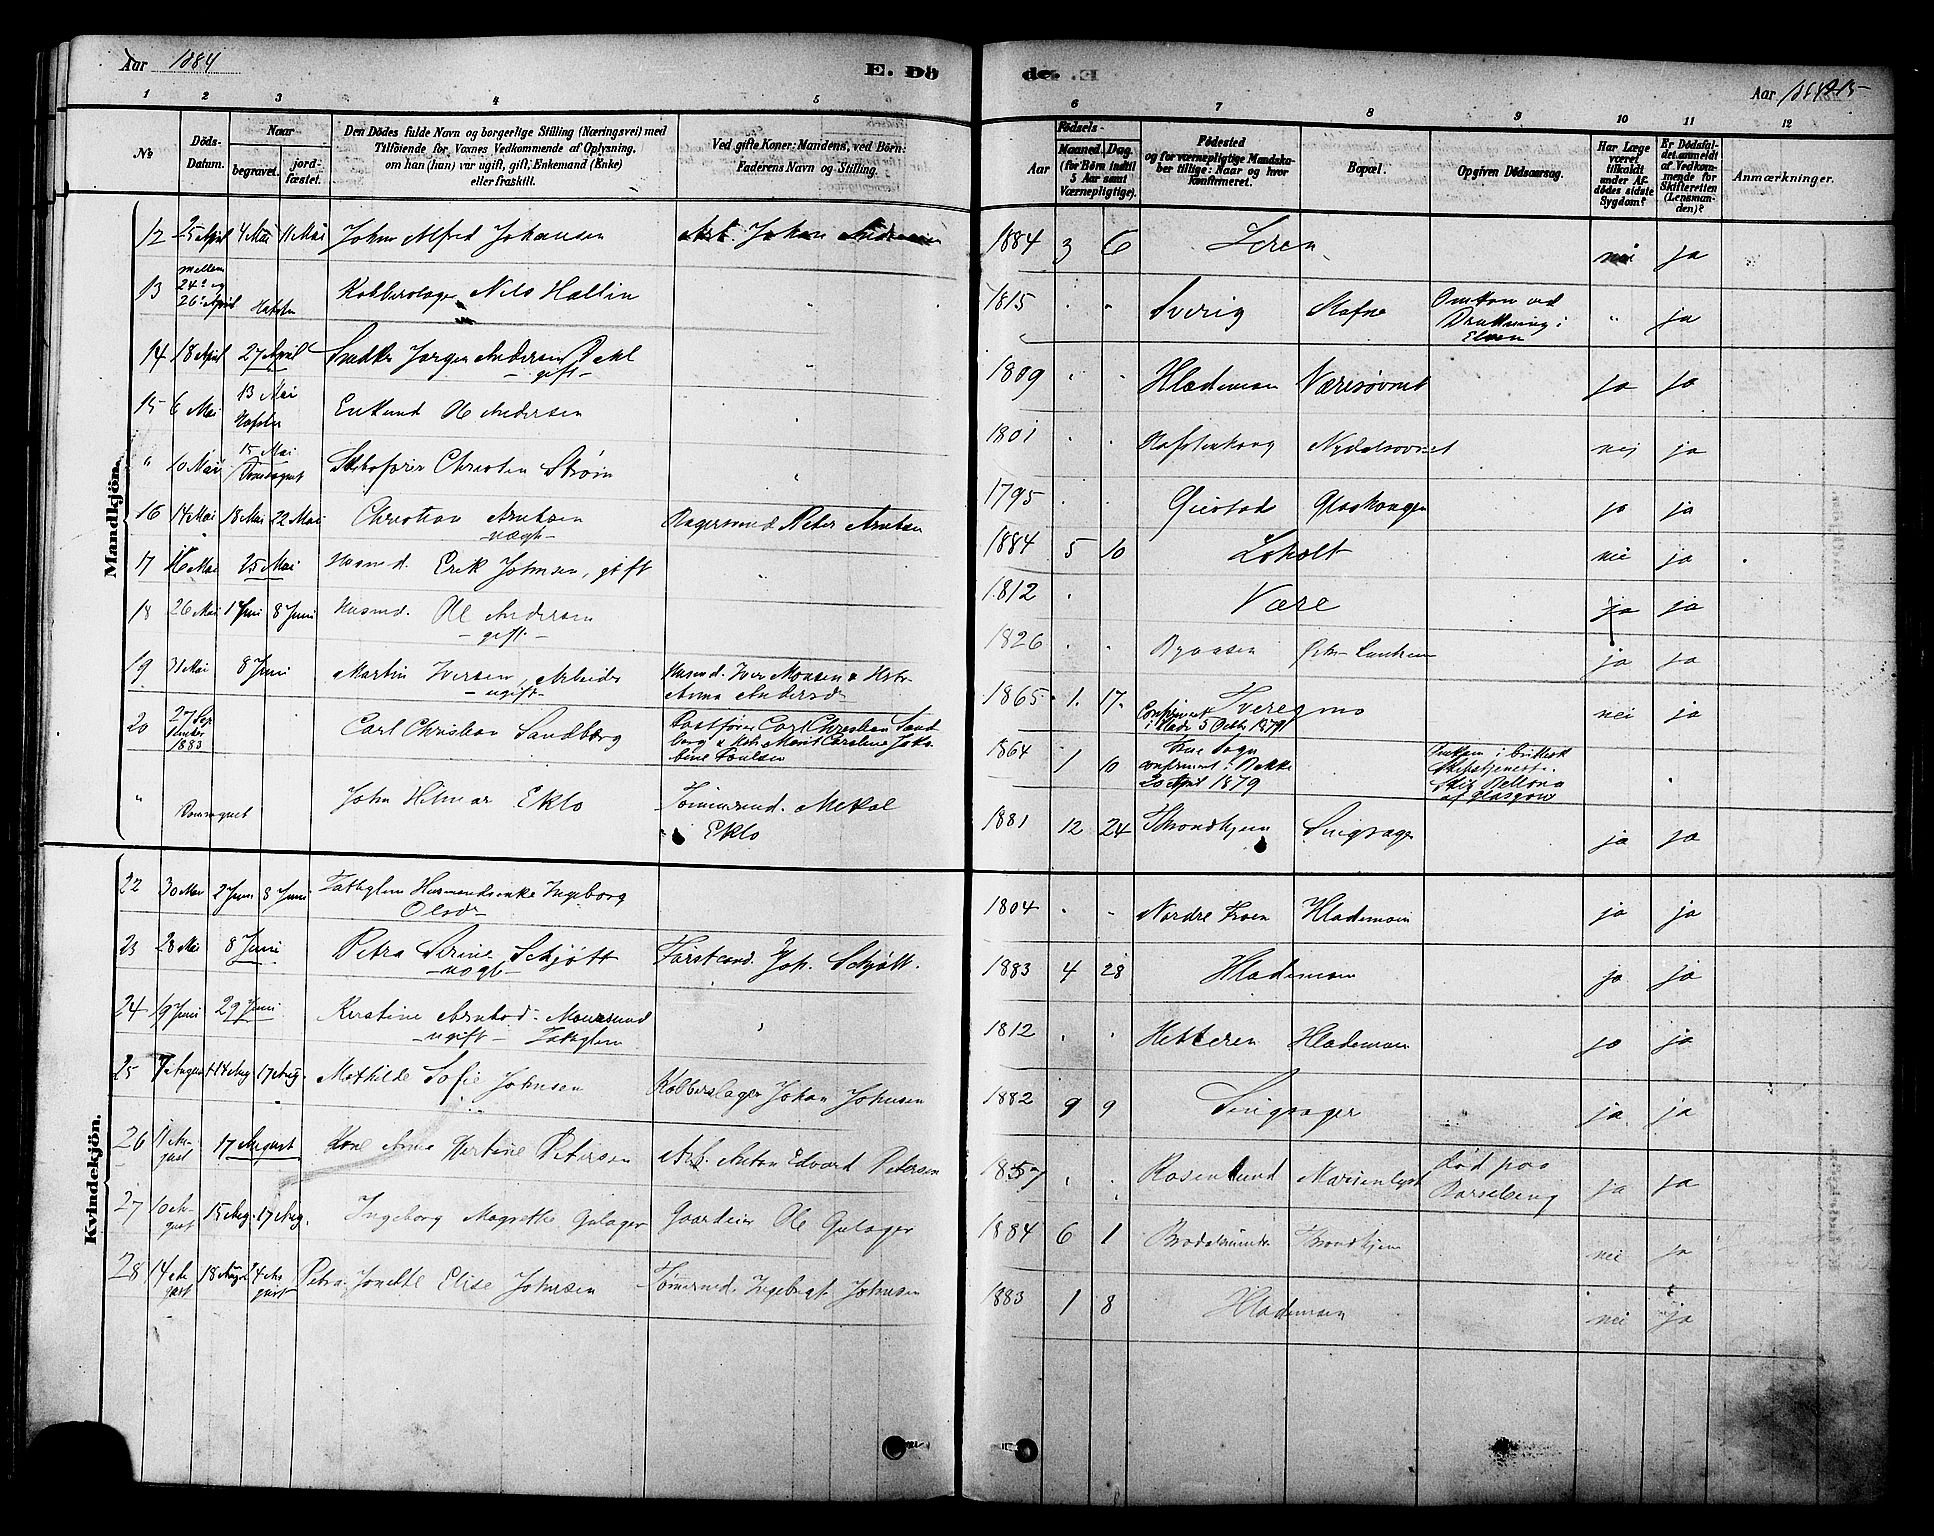 Aar 1884
E. Dö
de. E
Aar 1884 215
1 2 3 4 5 6 7 8 9 10 11 12
No
Döds-Datum.
Naar
begravet.
jord-fæstet.
Den Dödes fulde Navn og borgerlige Stilling (Næringsvei) med
Tilföiende for Voxnes Vedkommende af Oplysning,
om han (hun) var ugift, gift, Enkemand (Enke)
eller fraskilt.
Ved gifte Koner: Mandens, ved Börn:
Faderens Navn og Stilling.
Födsels-
Aar
Maaned. Dag.
(for Börn indtil
5 Aar samt
Værnepligtige).
Födested
og for værnepligtige Mandska-
ber tillige: Naar og hvor
konfirmeret.
Bopæl.
Opgiven Dödsaarsag.
Har Læge
været
tilkaldt
under Af-
dödes sidste
Sygdom?
Er Dödsfal-
det anmeldt
af Vedkom-
mende for
Skifteretten
(Lensman-
den)?
Anmærkninger.
Mandkjön.
12 25 April 4 Mai 11 Mai John Alfred Johansen Arb. Johan Andersen 1884 3 6 Leren nei ja
13 mellem 24de og 26de April Kobberslager Nils Hallin 1815 Sverig Stafne Omkom ved Drukning i Elven " ja
14 18 April 27 April Snedker Jørgen Andersen Dahl gift 1809 Hlademoen ja ja
15 6 Mai 13 Mai Enkemd Ole Andersen 1801 nei ja
" 10 Mai 15 Mai Christen Strøm 1795 ja ja
16 14 Mai 18 Mai 22 Mai Christian Arntsen Bagersvend Peter Arntsen 1884 5 10 Loholt nei ja
17 16 Mai 25 Mai Husmd. Erik Johnsen, gift 1812 Være ja ja
18 26 Mai 1 Juni 8 Juni Husmd. Ole Andersen gift 1826 Byaasen ja ja
19 31 Mai 8 Juni Martin Iversen, Arbeider ugift Husmd. Iver Monsen & Hstr Anna Andersd 1865 1 17 Confirmeret i Lade 5 Octbr 1879 nei ja
20 27 September 1883 Carl Christian Sandberg Postfører Carl Christian Sandberg & Hstr Marit Caroline Jakobine Poulsen 1864 1 10 confirmeret i Bakke 20 April 1879 Omkom i brittisk Skibstjeneste. Skib Bellona af Glasgow
" John Hilmar Eklo Tømmermd. Mekal Eklo 1881 12 24 Throndhjem Singsager ja ja
Kvindekjön.
22 30 Mai 2 Juni 8 Juni Fattiglem Husmandsenke Ingeborg Olsdr 1804 Nordre Hlademoen ja ja
23 28 Mai 8 Juni Petra Serine Schjøtt Forstcand. Joh. Schjøtt. 1883 4 28 Hlademoen ja ja
24 19 Juni 29 Juni Kerstine Arntsd. ugift Fattiglem 1812 Hitteren Hlademoen ja ja
25 7 August 14 Aug. 17 Aug. Mathilde Sofie Johnsen Kobberslager Johan Johnsen 1882 9 9 Singsager ja ja
26 11 August 17 August Kone Anna Hertine Petersen Arb. Anton Edvard Petersen 1857 Rosenlund Marienlyst død paa Barselseng ja ja
27 10 August 15 Aug. 17 Aug. Ingeborg Magrethe Gulager Gaardeier Ole Gulager 1884 6 1 Throndhjem nei ja
28 14 August 18 August Petra Jonette Elise Johnsen Tømmermd. Ingebrigt Johnsen 1883 1 8 Hlademoen nei ja